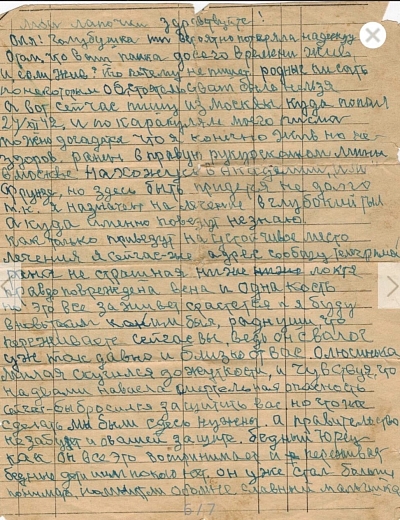 мои лапочки здравствуйте!
Оля! Голубушка ты вероятно потеряла надежду
о том, что ваш папка до сего времени жив
и сам жив? Но потому не пишет родные писать
по некоторым обстоятельствам было нельзя
А вот сейчас пишу из Москвы куда попал
24/XI 42, и по каракулям моего письма
можно догадатся что я конечно жив но не
здоров, ранен в правую руку осколком мины
в Москве нахожусь в академии
Фрунзе, но здесь быть придется не долго
т.к. я назначен на лечение в глубокий тыл
А куда именно повезут незнаю
как только привезут на устойчивое место
лечения я сейчас-же адрес сообщу телеграммой
рана не страшная ниже локтя
правда повреждена вена и одна кость
но это все заживет срастется и я буду
вновь таким каким был, родные что
переживаете сейчас вы, ведь он сволоч
уж так давно и близко от вас. Олюсинька
милая скучился до жуткости, и чувствуя что
над вами нависла смертельная опасность
сейчас-бы бросился защитить вас но что же
сделать мы были здесь нужнее, а правительство
незабудет и о вашей защите. Бедный Юрец
как он все это воспринимает и переживает
бедные дети им покоя нет, он уже стал большой
понимает славный мальчишка
6/7